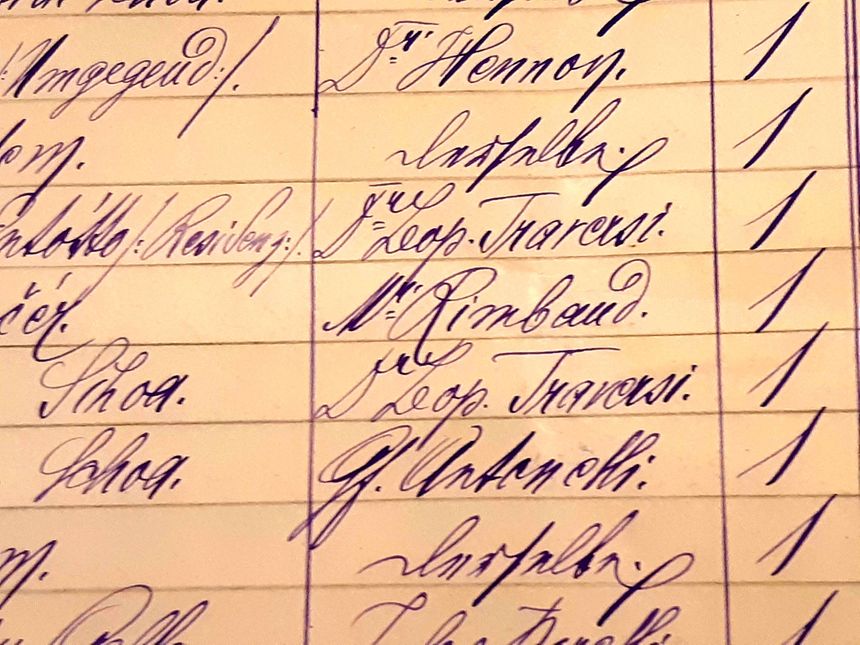 Umgegend:/. Dr. Hennon. 1
derselbe. 1
/:Residenz:/. Dr. Leop. Traversi. 1
Mr. Rimbaud. 1
Schoa. Dr. Leop. Traversi. 1
Schoa. Gf. Antonelli. 1
derselbe. 1